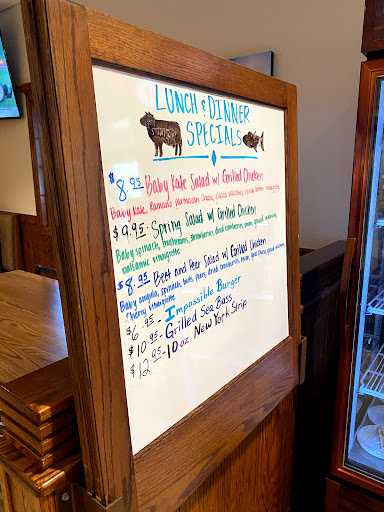 LUNCH & DINNER
SPECIALS
$8.95 Baby Kale Salad w/ Grilled Chicken
Baby Kale, Romano parmesan cheese, glazed
$9.95 - Spring Salad w/ Grilled Chicken
Baby spinach, mushrooms, strawberries, dried cranberries, onion, glazed walnuts,
balsamic vinaigrette
$8.95 Beet and Pear Salad w/ Grilled Chicken
Baby arugula, spinach, beets, pears, dried cranberries, onion, goat cheese, glazed walnuts,
cherry vinaigrette
$6.95 - Impossible Burger
$10.95 - Grilled Sea Bass
$12.95 - 10 oz. New York Strip